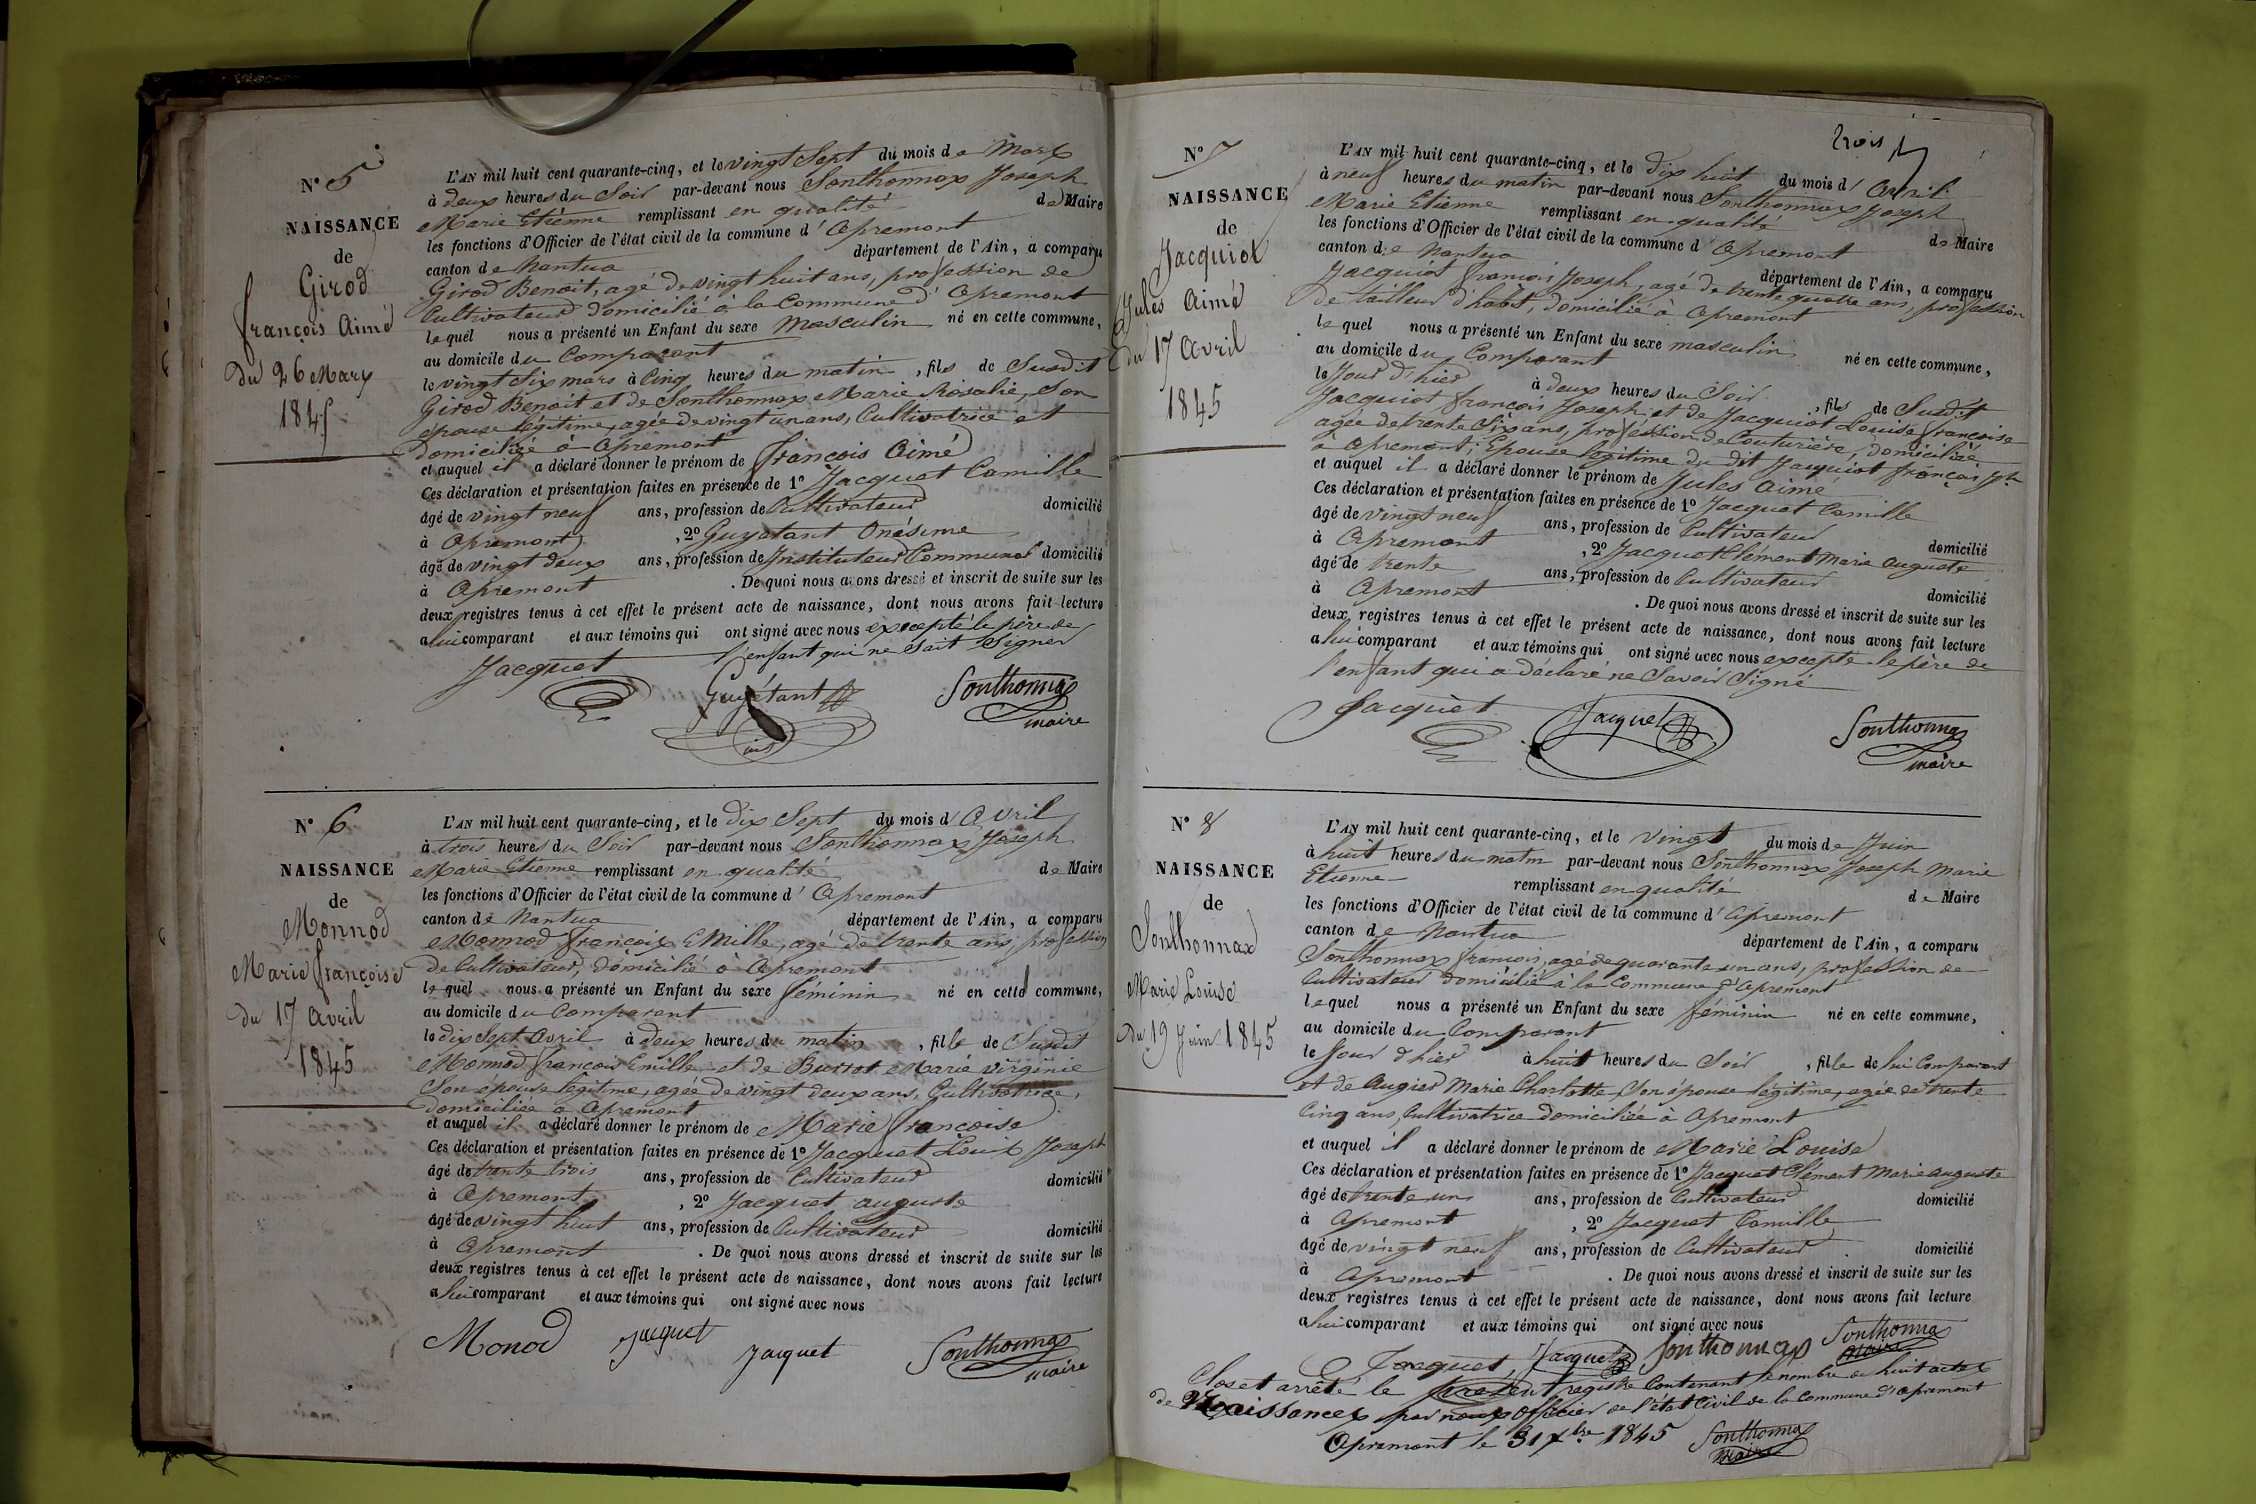 N° 5
NAISSANCE
de
Girod
françois Aimé
du 26 Mars
1845
L'AN mil huit cent quarante-cinq, et le vingt Sept du mois de Mars
à deux heures du Soir par-devant nous Sonthonnax Joseph
Marie Etienne remplissant en qualité de Maire
les fonctions d'Officier de l'état civil de la commune d' Apremont
canton de Nantua département de l'Ain, a comparu
Girod Benoit, agé de vingt huit ans, profession de
Cultivateur domicilié à la Commune d' Apremont
lequel nous a présenté un Enfant du sexe masculin né en cette commune,
au domicile du Comparant
le vingt Six mars à Cinq heures du matin, fils de Susdit
Girod Benoit et de Sonthonnax Marie Rosalie, Son
epouse légitime, agée de vingt un ans, Cultivatrice et
domiciliée à Apremont
et auquel il a déclaré donner le prénom de françois Aimé
Ces déclaration et présentation faites en présence de 1° Jacquet Camille
âgé de vingt neuf ans, profession de Cultivateur domicilié
à Apremont, 2° Guyétant Onésime
âgé de vingt deux ans, profession de Instituteur Communal domicilié
à Apremont. De quoi nous avons dressé et inscrit de suite sur les
deux registres tenus à cet effet le présent acte de naissance, dont nous avons fait lecture
a lui comparant et aux témoins qui ont signé avec nous excepté le père de
l'enfant qui ne Sait Signer
Jacquet Guyétant Sonthonnax
maire
N° 6
NAISSANCE
de
Monnod
Marie françoise
du 17 avril
1845
L'AN mil huit cent quarante-cinq, et le dix Sept du mois d'Avril
à trois heures du Soir par-devant nous Sonthonnax Joseph
Marie Etienne remplissant en qualité de Maire
les fonctions d'Officier de l'état civil de la commune d' Apremont
canton de Nantua département de l'Ain, a comparu
Monnod françois Emille, agé de trente ans, profession
de Cultivateur, domicilié à Apremont
lequel nous a présenté un Enfant du sexe féminin né en cette commune,
au domicile du Comparant
le dix Sept Avril à deux heures du matin, fille de Susdit
Monnod françois Emille et de Burtot Marie Virginie
Son épouse légitime, agée de vingt deux ans, Cultivatrice,
domiciliée à Apremont
et auquel il a déclaré donner le prénom de Marie françoise
Ces déclaration et présentation faites en présence de 1° Jacquet Louis Joseph
âgé de trente trois ans, profession de Cultivateur domicilié
à Apremont, 2° Jacquet auguste
âgé de vingt huit ans, profession de Cultivateur domicilié
à Apremont. De quoi nous avons dressé et inscrit de suite sur les
deux registres tenus à cet effet le présent acte de naissance, dont nous avons fait lecture
a lui comparant et aux témoins qui ont signé avec nous
Monod Jacquet Jacquet Sonthonnax
maire
trois
N° 7
NAISSANCE
de
Jacquiot
Jules Aimé
du 17 Avril
1845
L'AN mil huit cent quarante-cinq, et le dix huit du mois d' Avril
à neuf heures du matin par-devant nous Sonthonnax Joseph
Marie Etienne remplissant en qualité de Maire
les fonctions d'Officier de l'état civil de la commune d' Apremont
canton de Nantua département de l'Ain, a comparu
Jacquiot françois Joseph, agé de trente quatre ans, profession
de tailleur d'habit, domicilié à Apremont
lequel nous a présenté un Enfant du sexe masculin né en cette commune,
au domicile du Comparant
le Jour d'hier à deux heures du Soir, fils de Susdit
Jacquiot françois Joseph et de Jacquiot Louise françoise
agée de trente Six ans, profession de Couturière, domiciliée
à Apremont, Epouse légitime du dit Jacquiot françois Jph
et auquel il a déclaré donner le prénom de Jules Aimé
Ces déclaration et présentation faites en présence de 1° Jacquet Camille
âgé de vingt neuf ans, profession de Cultivateur domicilié
à Apremont, 2° Jacquet Clément Marie Auguste
âgé de trente ans, profession de Cultivateur domicilié
à Apremont. De quoi nous avons dressé et inscrit de suite sur les
deux registres tenus à cet effet le présent acte de naissance, dont nous avons fait lecture
a lui comparant et aux témoins qui ont signé avec nous excepté le père de
l'enfant qui a déclaré ne Savoir Signé
Jacquet Jacquet Sonthonnax
maire
N° 8
NAISSANCE
de
Sonthonnax
Marie Louise
du 19 Juin 1845
L'AN mil huit cent quarante-cinq, et le vingt du mois de Juin
à huit heures du matin par-devant nous Sonthonnax Joseph Marie
Etienne remplissant en qualité de Maire
les fonctions d'Officier de l'état civil de la commune d' Apremont
canton de Nantua département de l'Ain, a comparu
Sonthonnax françois, agé de quarante un ans, profession de
Cultivateur domicilié à la Commune d'Apremont
lequel nous a présenté un Enfant du sexe féminin né en cette commune,
au domicile du Comparant
le Jour d'hier à huit heures du Soir, fille de lui Comparant
et de Augier Marie Charlotte Son épouse légitime, agée de trente
Cinq ans, Cultivatrice domiciliée à Apremont
et auquel il a déclaré donner le prénom de Marie Louise
Ces déclaration et présentation faites en présence de 1° Jacquet Clément Marie auguste
âgé de trente un ans, profession de Cultivateur domicilié
à Apremont, 2° Jacquet Camille
âgé de vingt neuf ans, profession de Cultivateur domicilié
à Apremont. De quoi nous avons dressé et inscrit de suite sur les
deux registres tenus à cet effet le présent acte de naissance, dont nous avons fait lecture
a lui comparant et aux témoins qui ont signé avec nous
Jacquet Jacquet Sonthonnax Sonthonnax
maire
Clos et arrêté le présent registre Contenant le nombre de huit actes
de Naissances par nous Officier de l'état Civil de la Commune d'Apremont
Apremont le 31 Xbre 1845 Sonthonnax
Maire